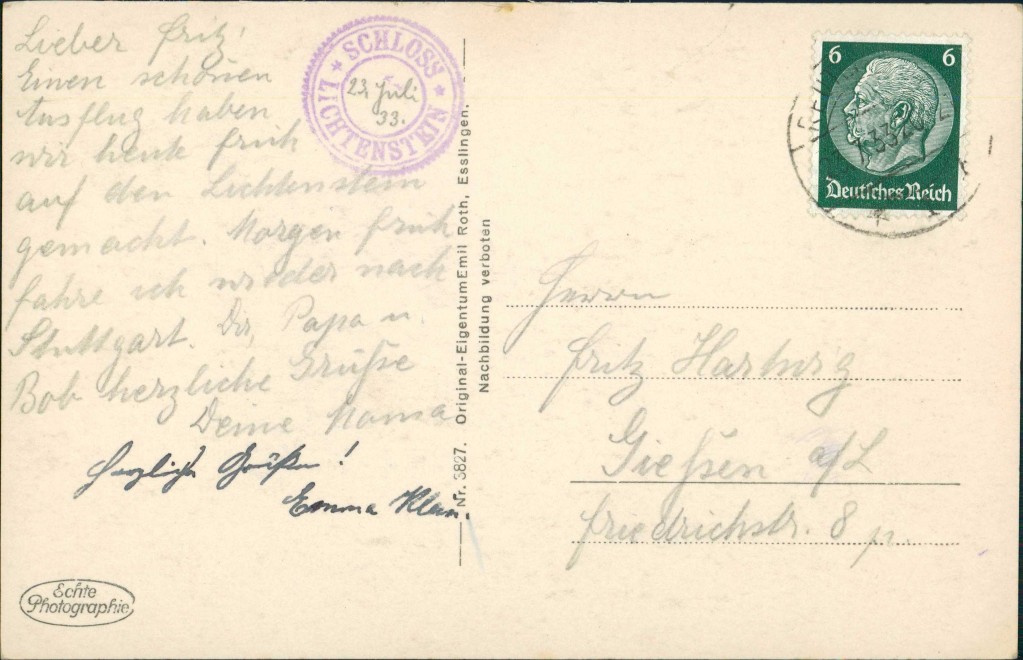 Lieber Fritz!
Einen schönen
Ausflug haben
wir heute früh
auf den Lichtenstein
gemacht. Morgen früh
fahre ich wieder nach
Stuttgart. Dir, Papa u.
Bob herzliche Grüße
Deine Mama
Herzliche Grüße!
Emma Klein.
Echte
Photographie
★ SCHLOSS ★
LICHTENSTEIN
23 Juli
33.
Nr. 3827. Original-Eigentum Emil Roth, Esslingen.
Nachbildung verboten
6 6
Deutsches Reich
Herrn
Fritz Hartwig
Gießen a/L
Friedrichstr. 8 p.